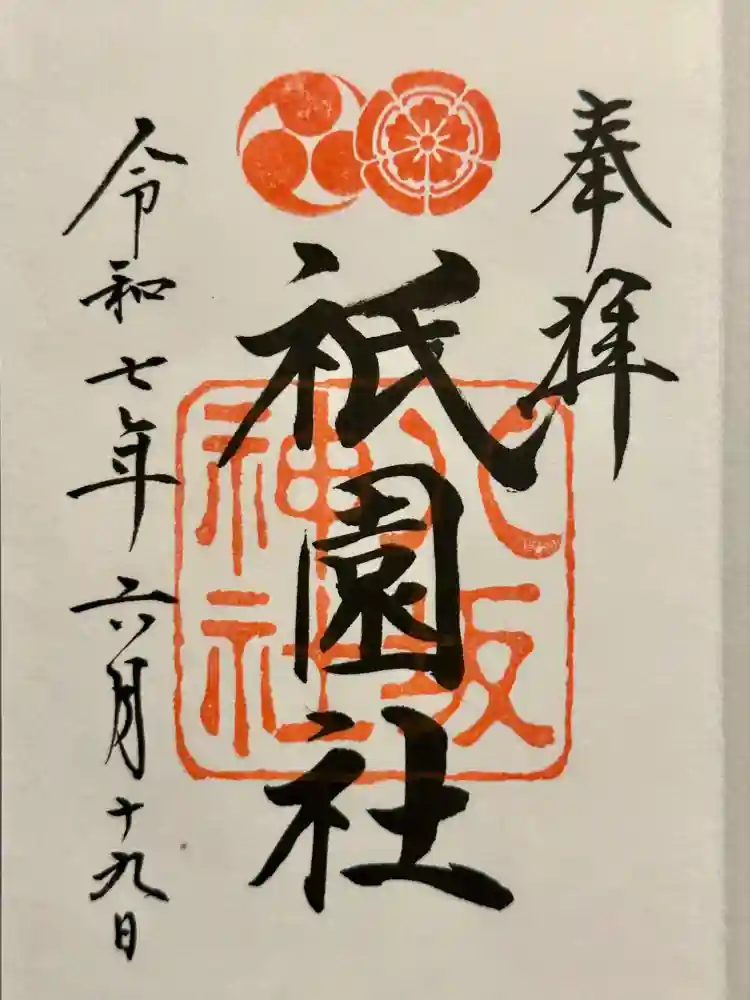 奉拝
祇園社
八坂
神社
令和七年六月十九日